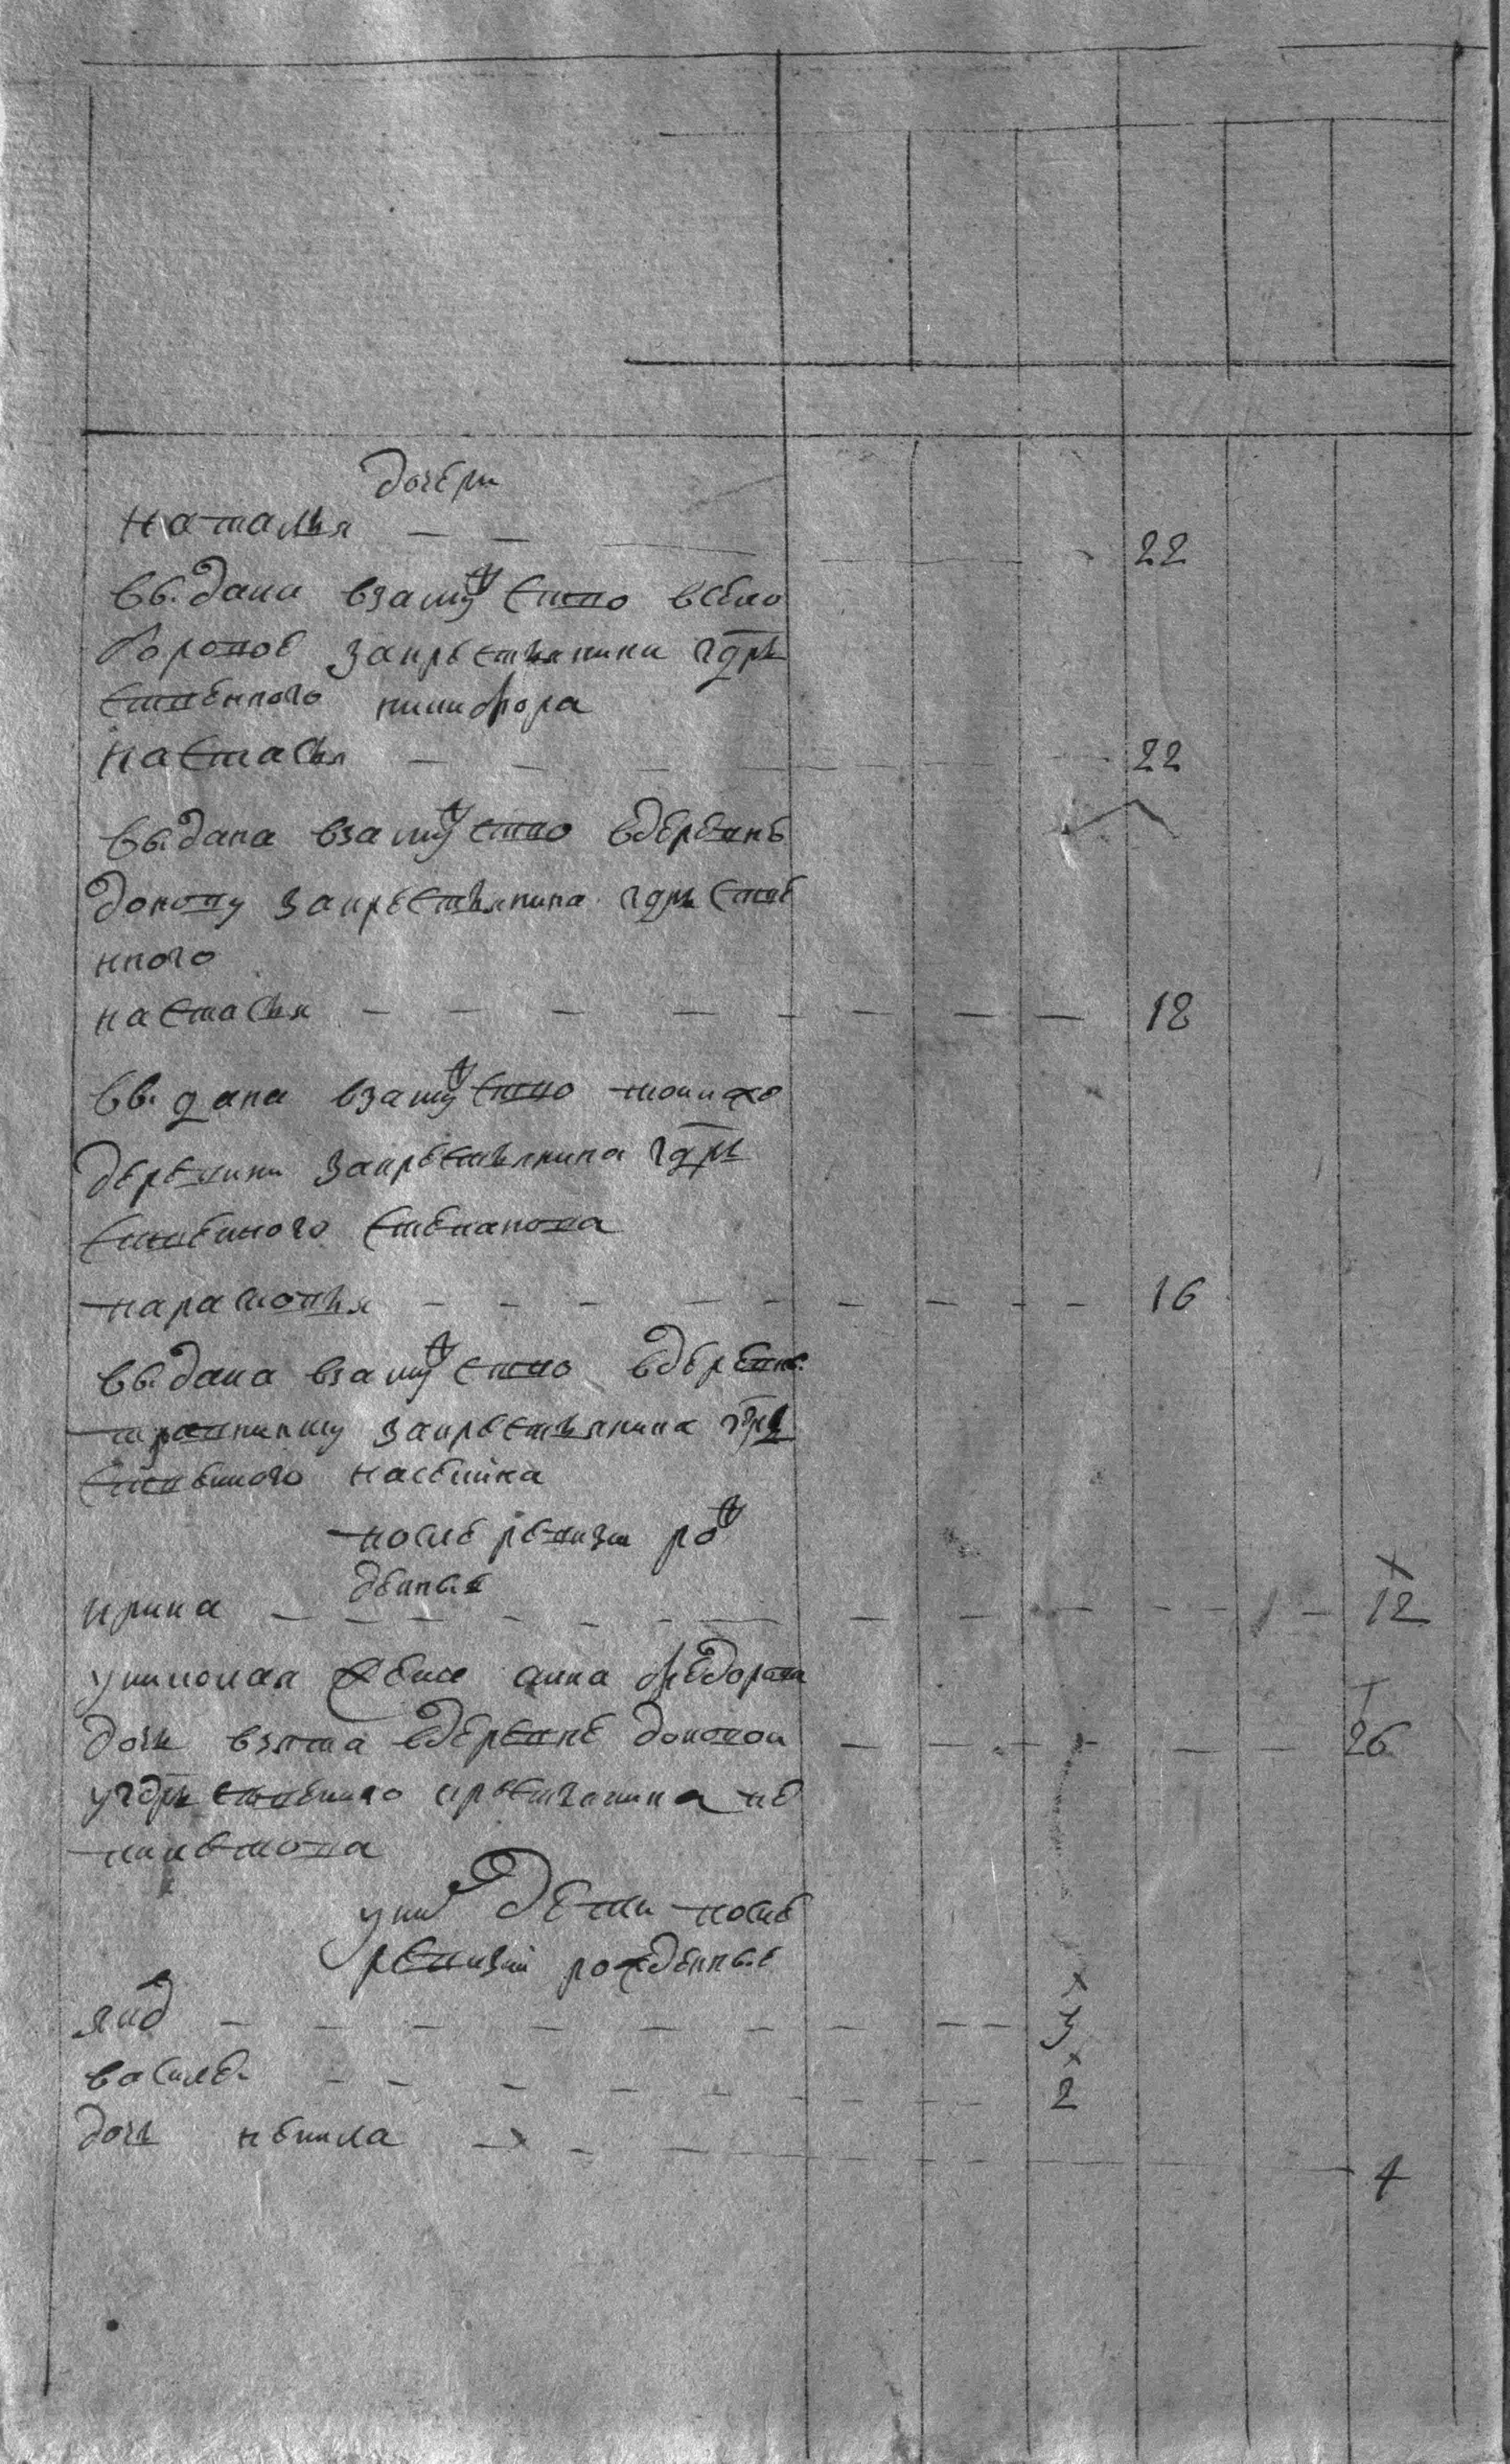 дочери
наталья — — 22
выдана взамужство всело
боровое закрестьянина гдрь
ственного никифора
настасья — — — 22
выдана взамужство вдеревню
донову закрестьянина гдрьстве
нного
настасья — — — 18
выдана взамужство тоижде
деревни закрестьянина гдрь
ственного степанова
парасковья — — — 16
выдана взамужство вдеревню
закрестьянина гдрь
ственного
после ревизи рож
денные
ирина — — — 12
уникола жена анна федорова
дочь взята вдеревне доновои
угдрьственного крестьянина

уних дети после
ревизии рожденные
яков — — — 3
василеи — — — 2
дочь ненила — — — 4